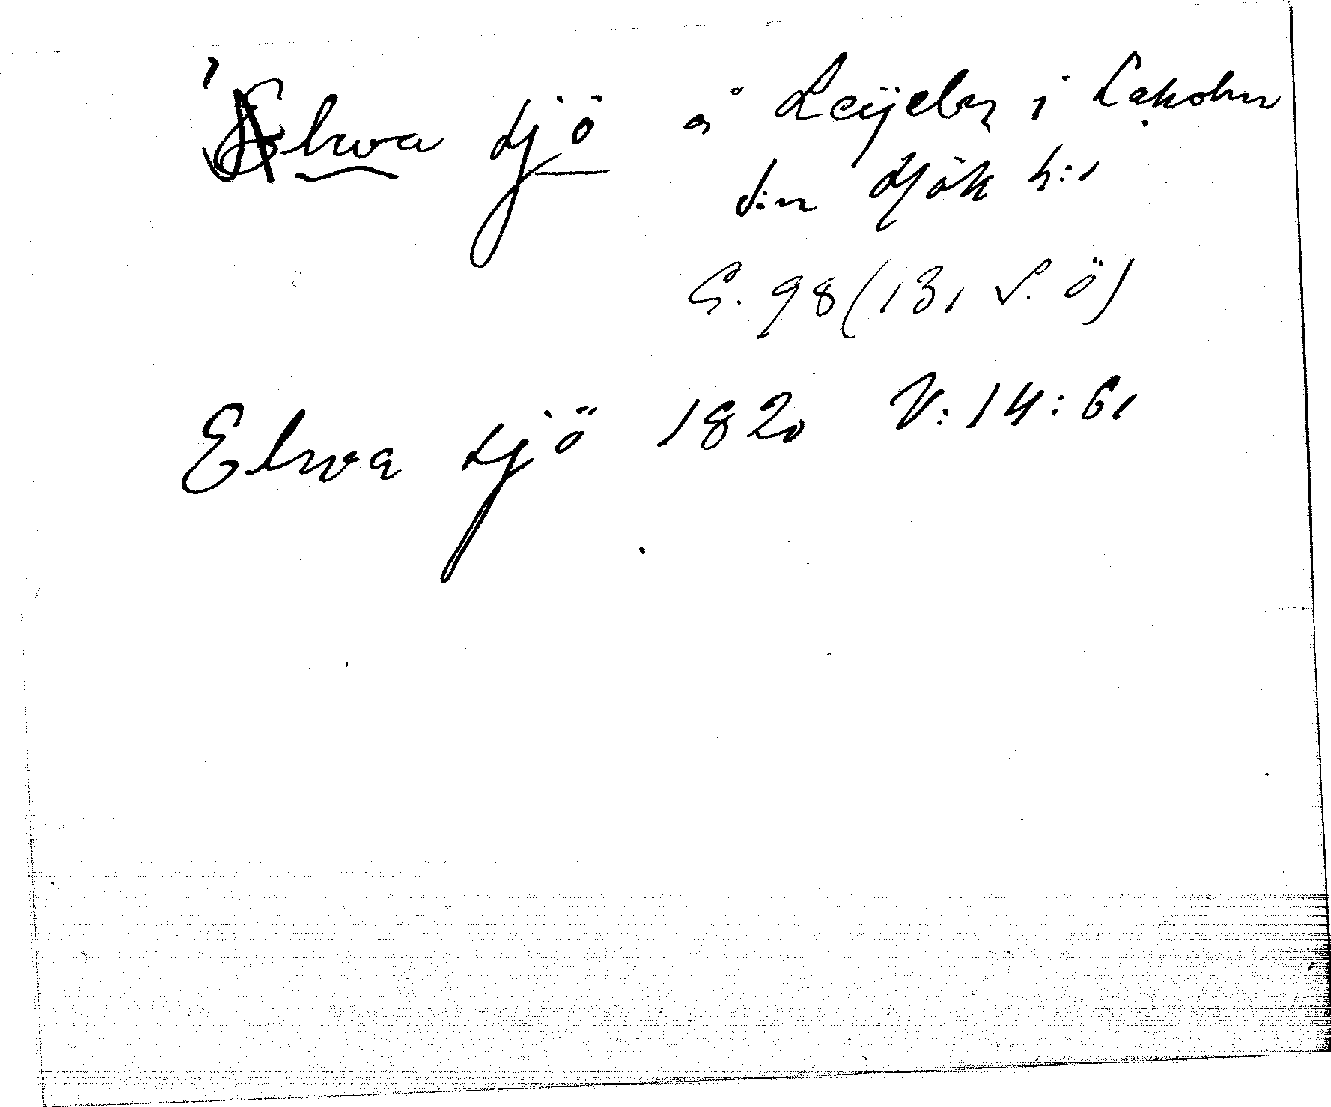 Elwa sjö å Leijeby i Lekohn
s:n Sjök h:
G. 98 (131 v. ö)
Elwa sjö 1820 V:14:61